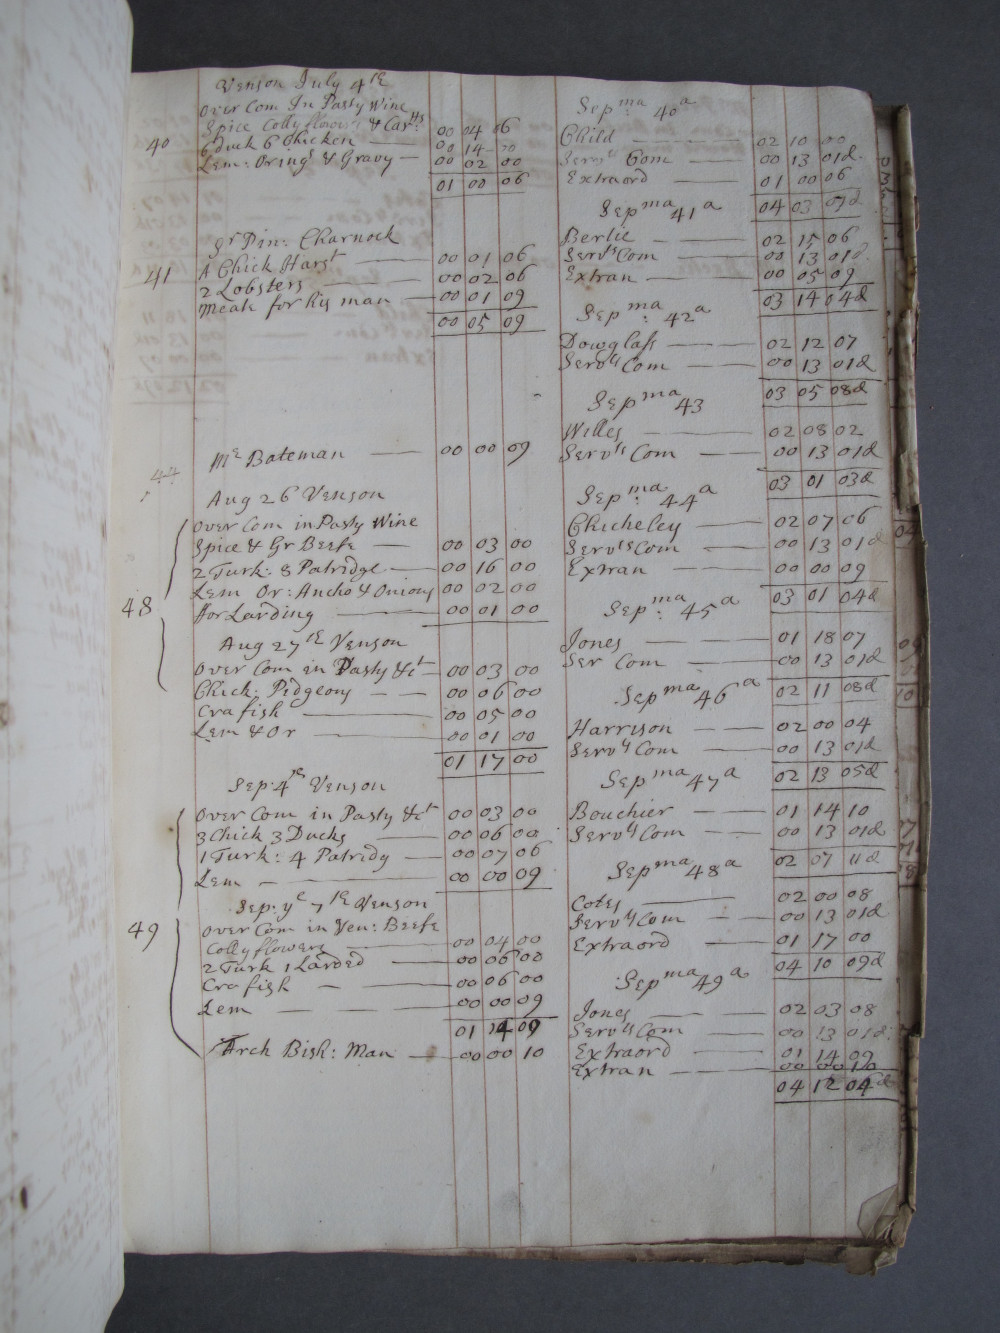 Venson July 4th
Over Com In Pasty Wine
Spice Collyflowers & Car:tts 00 04 06
40 6 Duck 6 Chicken 00 14 00
Lem: Oring:s & Gravy 00 02 00
01 00 06
gr Din: Charnock
41 A Chick Harst 00 01 06
2 Lobsters 00 02 06
Meat for his man 00 01 09
00 05 09
44 Mr Bateman 00 00 09
Aug 26 Venson
Over Com in Pasty Wine
Spice & Gr Beefe 00 03 00
2 Turk: 8 Patridge 00 16 00
48 Lem Or: Ancho & Onions 00 02 00
ffor Larding 00 01 00
Aug 27th Venson
Over Com in Pasty &ct 00 03 00
Chick: Pidgeons 00 06 00
Crafish 00 05 00
Lem & Or 00 01 00
01 17 00
Sep: 4th Venson
Over Com in Pasty &ct 00 03 00
3 Chick 3 Ducks 00 06 00
1 Turk: 4 Patridg 00 07 06
Lem 00 00 09
Sep: ye 7th Venson
49 Over Com in Ven: Beefe
Collyflowers 00 04 00
2 Turk 1 Larded 00 06 00
Crafish 00 06 00
Lem 00 00 09
01 14 09
Arch Bish: Man 00 00 10
Sepma: 40a
Child 02 10 00
Servts Com 00 13 01d
Extraord 01 00 06
Sepma 41a 04 03 07d
Bertie 02 15 06
Servts Com 00 13 01d
Extran 00 05 09
Sepma: 42a 03 14 04d
Dowglass 02 12 07
Servts Com 00 13 01d
Sepma 43 03 05 08d
Willes 02 08 02
Servts Com 00 13 01d
Sepma: 44a 03 01 03d
Chicheley 02 07 06
Servts Com 00 13 01d
Extran 00 00 09
Sepma: 45a 03 01 04d
Jones 01 18 07
Ser Com 00 13 01d
Sepma 46a 02 11 08d
Harrison 02 00 04
Servts Com 00 13 01d
Sepma 47a 02 13 05d
Bouchier 01 14 10
Servts Com 00 13 01d
Sepma 48a 02 07 11d
Cotes 02 00 08
Servts Com 00 13 01d
Extraord 01 17 00
Sepma 49a 04 10 09d
Jones 02 03 08
Servts Com 00 13 01d
Extraord 01 14 09
Extran 00 00 10
04 12 04d